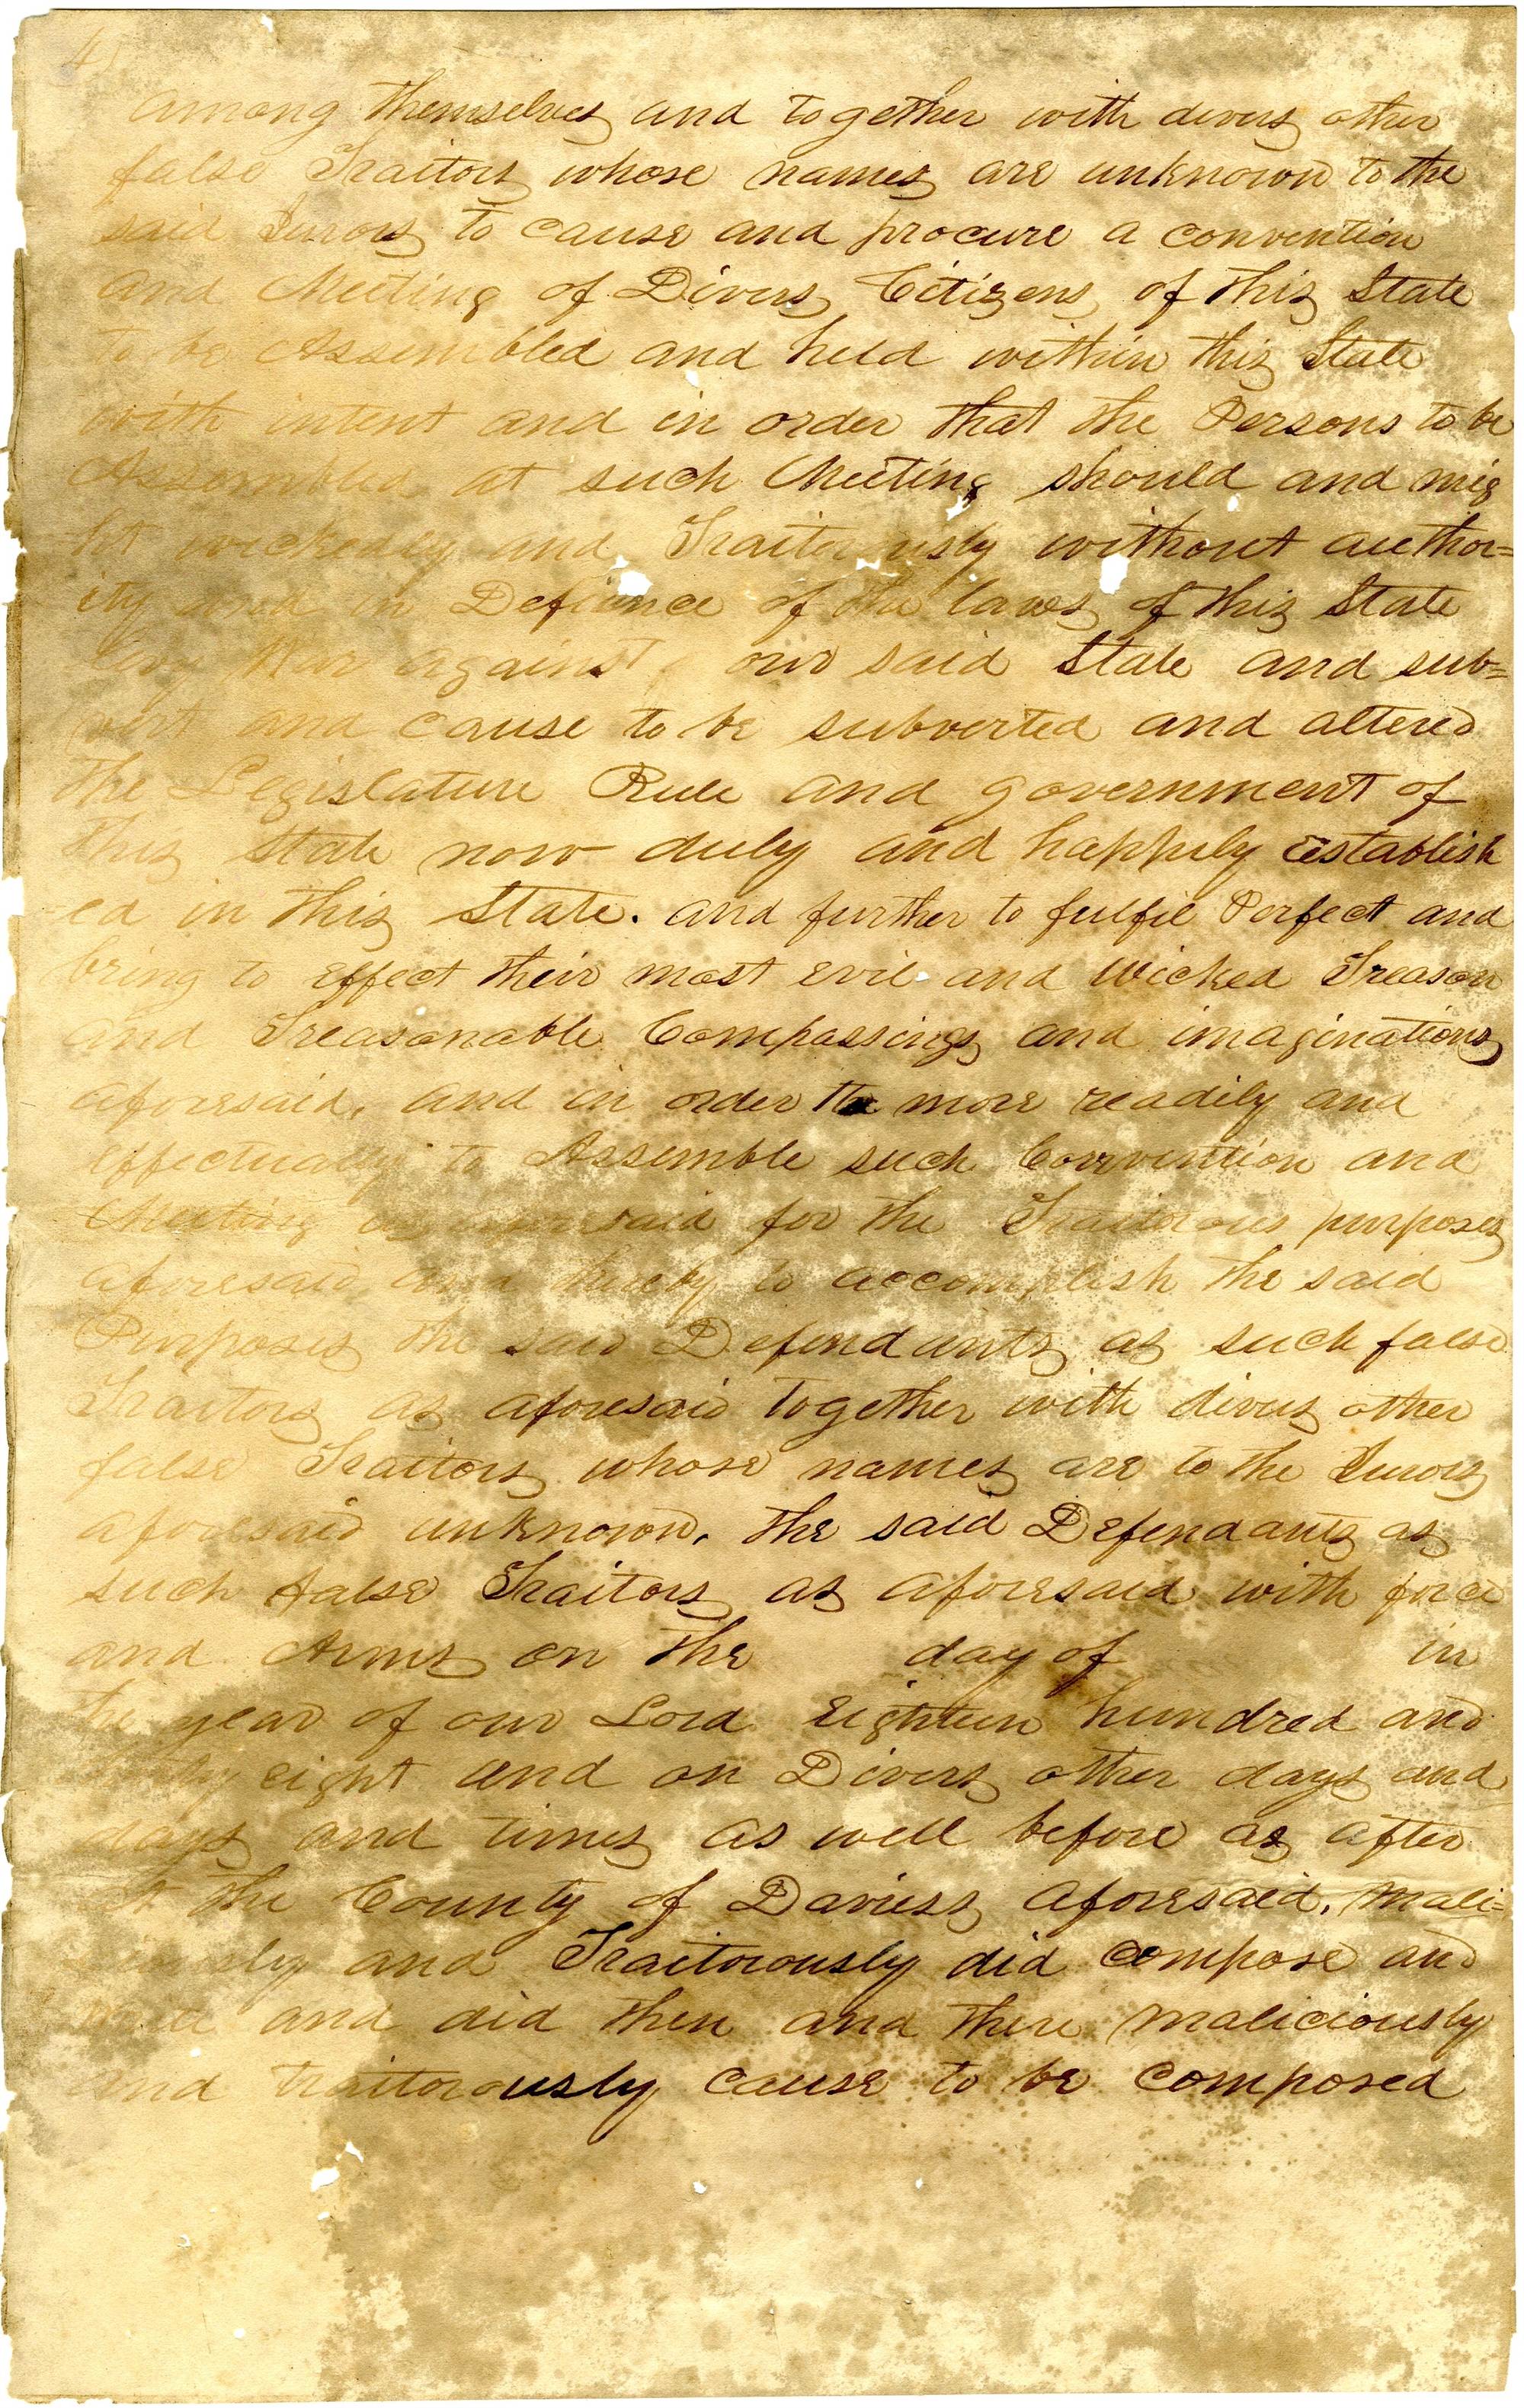 4
among themselves and together with divers other
false Traitors whose names are unknown to the
said Jurors to cause and procure a convention
and Meeting of Divers Citizens of this State
to be Assembled and held within this State
with intent and in order that the Persons to be
Assembled at such Meeting should and mig
ht wickedly and Traitorously without author=
ity and in Defiance of the laws of this State
levy War against our said State and sub=
vert and cause to be subverted and altered
the Legislature Rule and government of
this State now duly and happily establish
ed in this State. and further to fulfil Perfect and
bring to effect their most evil and wicked Treason
and Treasonable Compassings and imaginations
aforesaid, and in order the more readily and
effectually to Assemble such Convention and
Meeting as aforesaid for the Traitorous purposes
aforesaid and thereby to accomplish the said
Purposes the said Defendants as such false
Traitors as aforesaid together with divers other
false Traitors whose names are to the Jurors
aforesaid unknown, the said Defendants as
such false Traitors as aforesaid with force
and Arms on the day of in
the year of our Lord Eighteen hundred and
eight and on Divers other days and
days and times as well before as after
at the County of Daviess aforesaid, Mali=
ciously and Traitorously did compose and
and did then and there maliciously
and traitorously cause to be composed